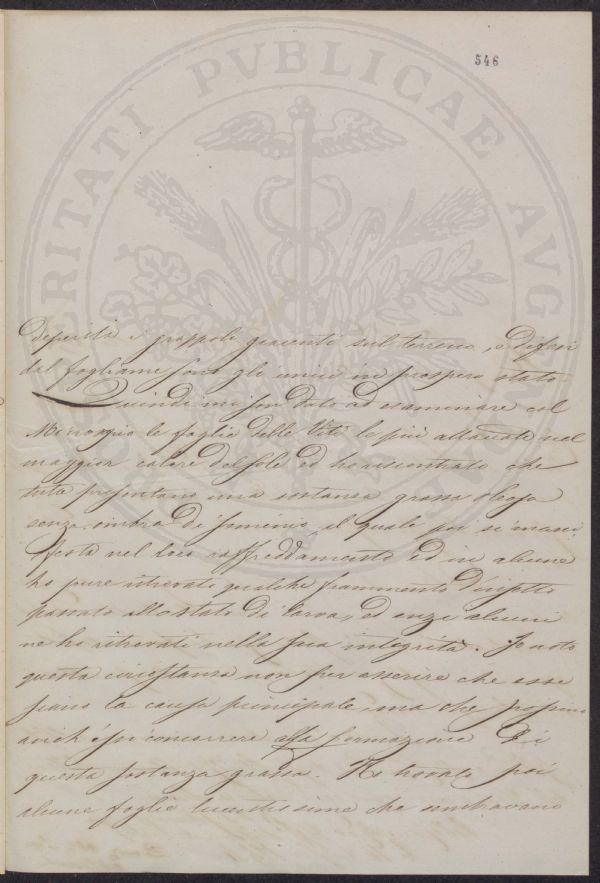 546
deperita i grappoli giacenti sul terreno, e difesi
dal fogliame sono gli unici in prospero stato
Quindi mi son dato ad esaminare col
le foglie delle Viti le più attaccate nel
maggior calore del sole ed ho riscontrato che
tute presentano una sostanza grassa oleosa
senza ombra di il quale poi si mani
festa nel loro raffreddamento ed in alcune
ho pure ritrovato qualche frammento d'insetto
passato allo stato di larva, ed anzi alcuni
ne ho ritrovati nella sua integrità. Io noto
questa circostanza non per asserire che esse
siano la causa principale, ma che possino
anch'essi concorrere alla formazione di
questa sostanza grassa. Ho trovato poi
alcune foglie lucentissime che sembravano
PVBLICAE